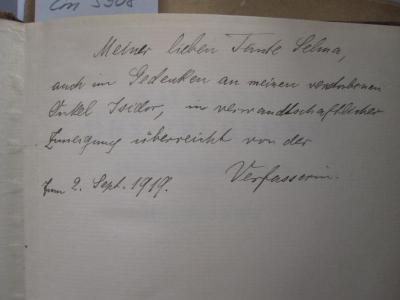 Con 5308
Meiner lieben Tante Selma,
auch im Gedenken an meinen verstorbenen
Onkel Isidor, in verwandtschaftlicher
Zuneigung überreicht von der
Verfasserin.
Zum 2. Sept. 1919.